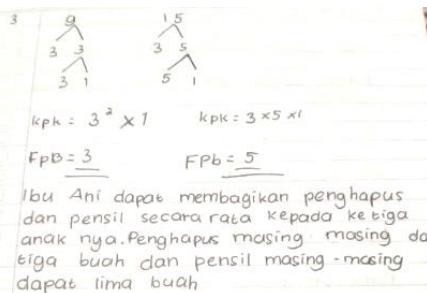 3 9 15
3 3 3 5
3 1 5 1
kpk = 3² × 1 kpk = 3 × 5 × 1
FpB = 3 FPb = 5
Ibu Ani dapat membagikan penghapus
dan pensil secara rata kepada ketiga
anak nya. Penghapus masing masing da
tiga buah dan pensil masing-masing
dapat lima buah